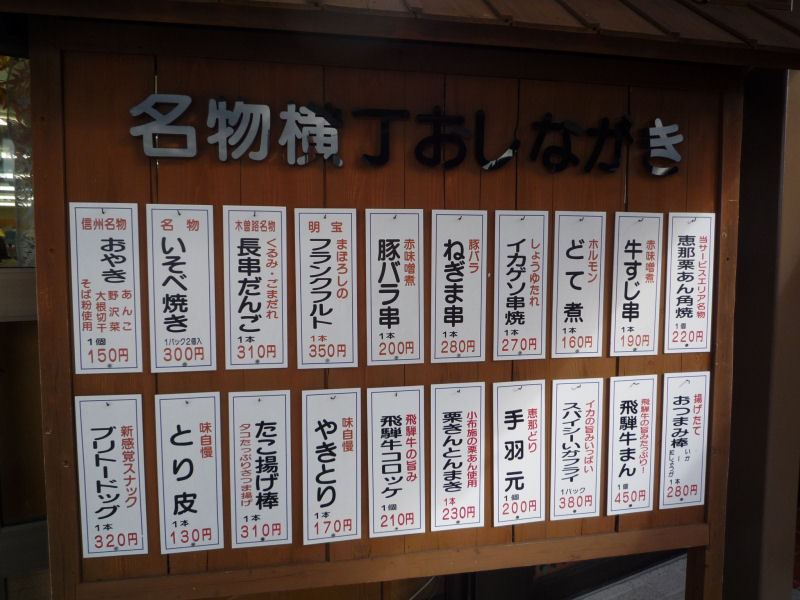 名物横丁おしながき
当サービスエリア名物
恵那栗あん角焼
1個
220円
赤味噌煮
牛すじ串
1本
190円
ホルモン
どて煮
1本
160円
しょうゆたれ
イカゲン串焼
1本
270円
豚バラ
ねぎま串
1本
280円
赤味噌煮
豚バラ串
1本
200円
明宝
まぼろしの
フランクフルト
1本
350円
木曽路名物
くるみ・ごまだれ
長串だんご
1本
310円
名物
いそべ焼き
1パック2個入
300円
信州名物
おやき
あんこ
野沢菜
大根切干
そば粉使用
1個
150円
揚げたて
おつまみ棒
いか
1本
280円
飛騨牛の旨みたっぷり!
飛騨牛まん
1個
450円
イカの旨みいっぱい
スパイシーいかフライ
1パック
380円
恵那どり
手羽元
1個
200円
小布施の栗あん使用
栗きんとんまき
1本
230円
飛騨牛の旨み
飛騨牛コロッケ
1個
210円
味自慢
やきとり
1本
170円
たこ揚げ棒
タコたっぷりさつま揚げ
1本
310円
味自慢
とり皮
1本
130円
新感覚スナック
ブリトードッグ
1本
320円